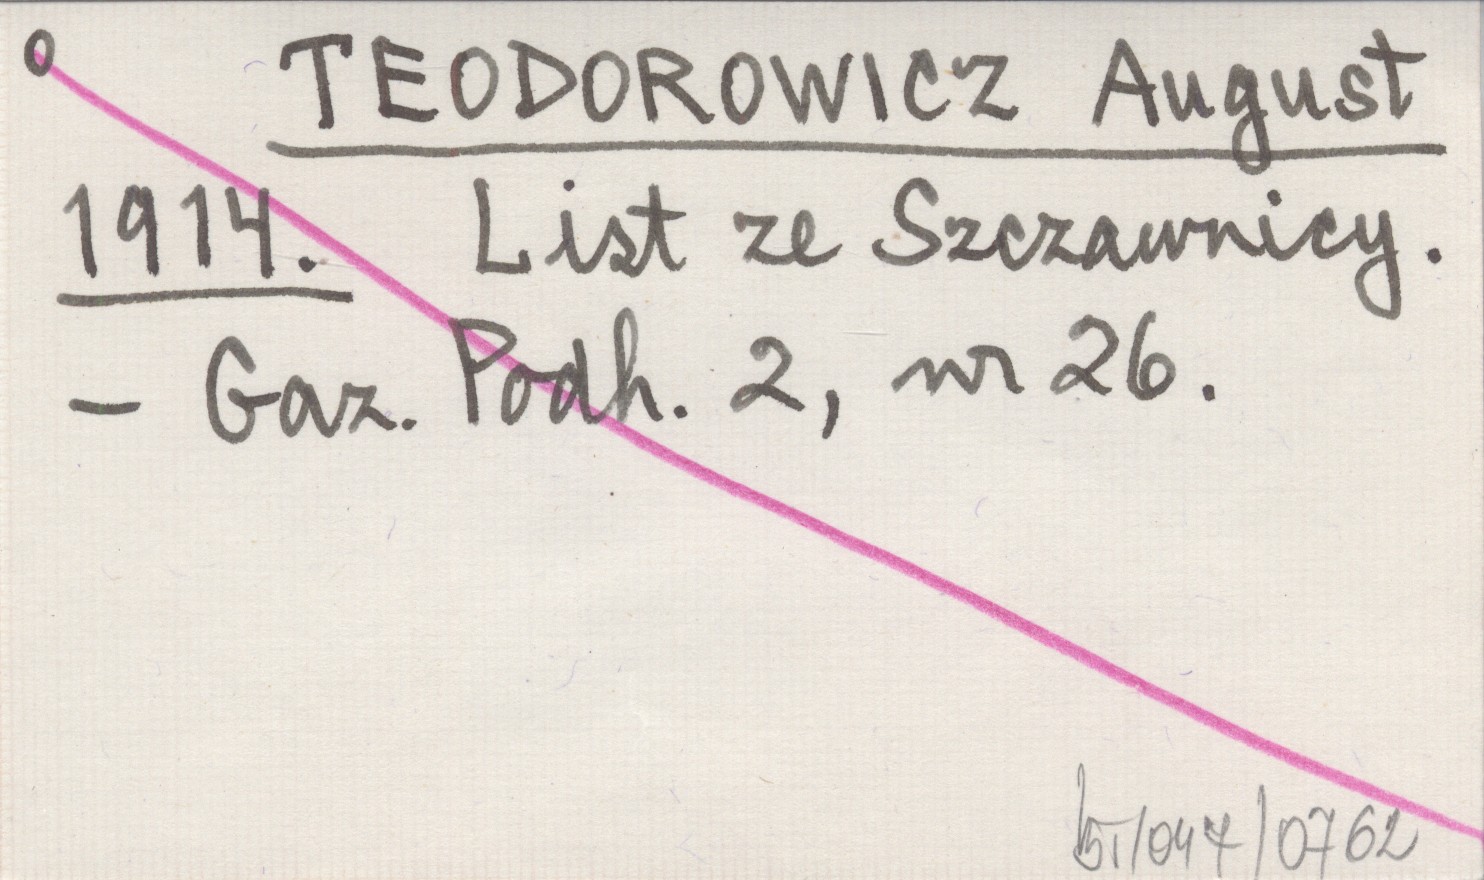 0 TEODOROWICZ August
1914. List ze Szczawnicy.
- Gaz. Podh. 2, nr 26.
/0762